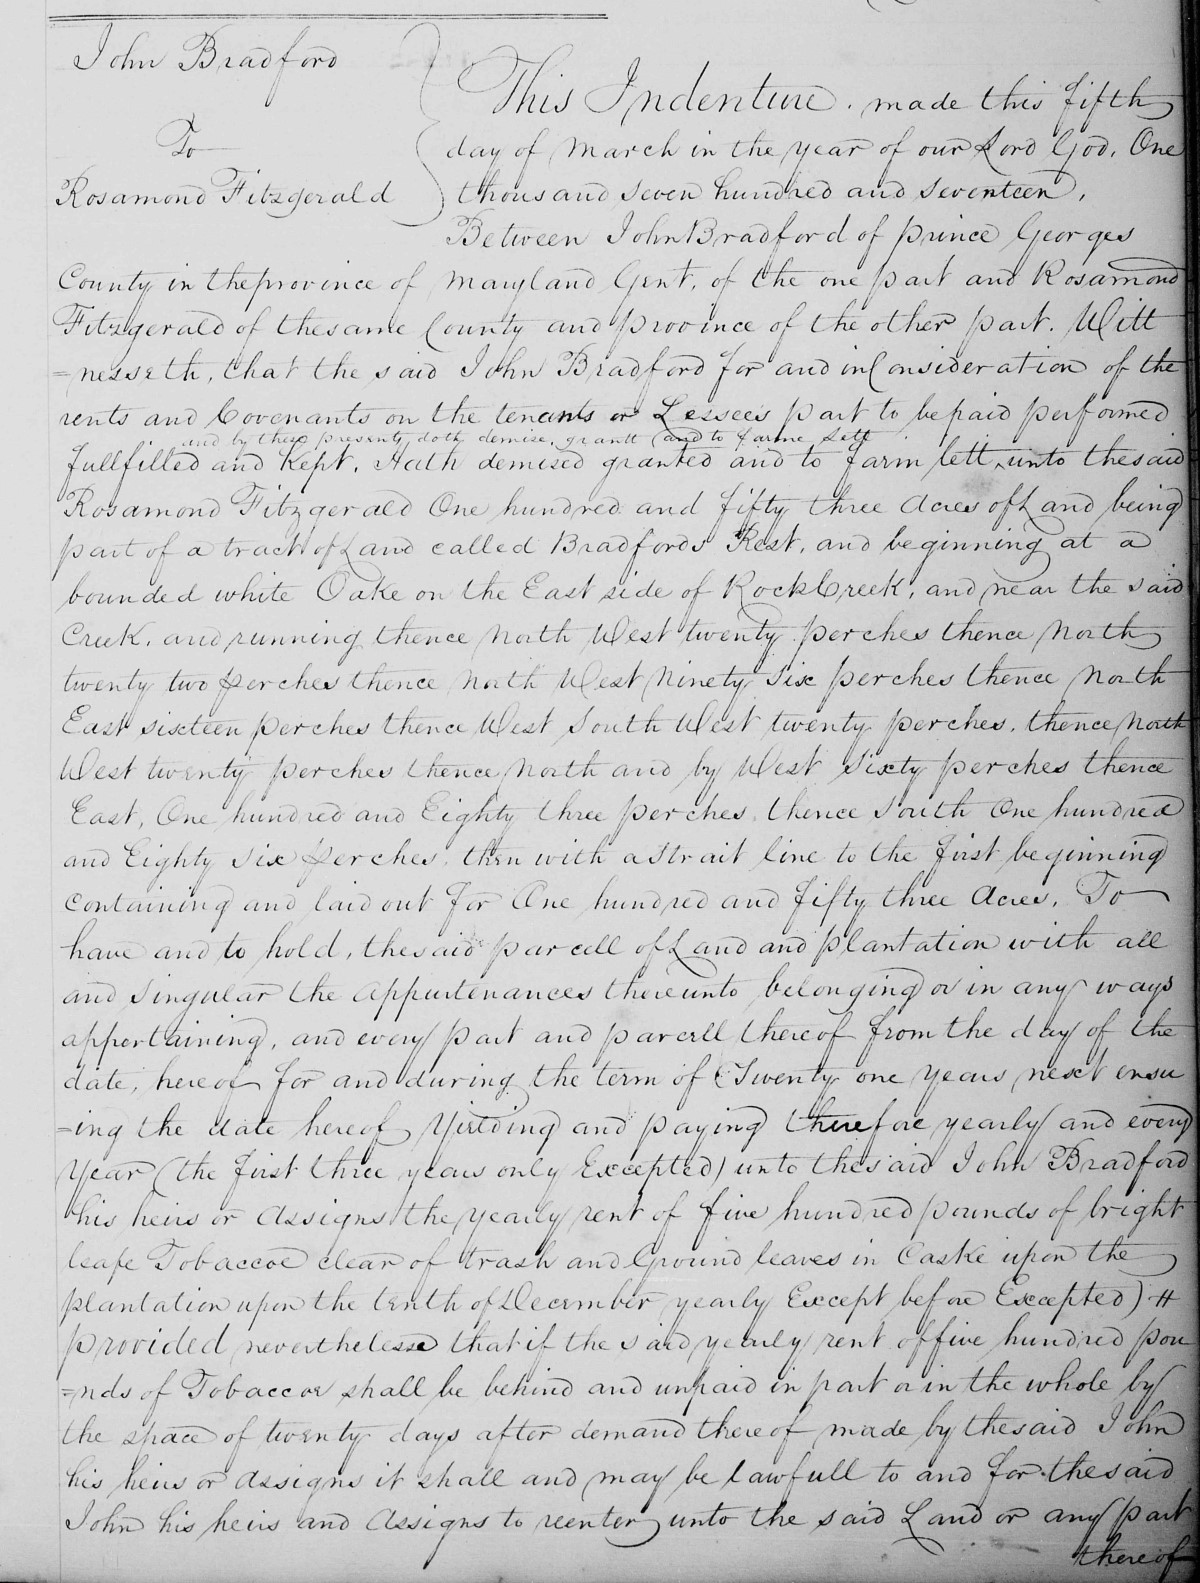 John Bradford
To
Rosamond Fitzgerald
This Indenture. made this fifth
day of March in the year of our Lord God, One
thousand seven hundred and seventeen,
Between John Bradford of prince Georges
County in the province of Maryland Gent. of the one part and Rosamond
Fitzgerald of the same County and province of the other part. Witt
=nesseth, that the said John Bradford for and in Consideration of the
rents and Covenants on the tenants or Lessees part to be paid performed
and by these presents, doth demise, grantt and to farme lett
fullfilled and Kept, Hath demised granted and to farm lett, unto the said
Rosamond Fitzgerald One hundred and fifty three Acres of Land being
part of a tract of Land called Bradfords Rest, and beginning at a
bounded white Oake on the East side of Rock Creek, and near the said
Creek, and running thence North West twenty perches thence North
twenty two perches thence North West Ninety six perches thence North
East sixteen perches thence West South West twenty perches, thence North
West twenty perches thence North and by West sixty perches thence
East, One hundred and Eighty three perches, thence South One hundred
and Eighty six perches, then with a Strait line to the first beginning
Containing and laid out for One hundred and fifty three Acres, To
have and to hold, the said parcell of Land and plantation with all
and singular the Appurtenances thereunto belonging or in any ways
appertaining, and every part and parcell thereof from the day of the
date, hereof for and during the term of Twenty one Years next ensu
=ing the date hereof Yielding and paying therefore yearly and every
Year (the first three years only Excepted) unto the said John Bradford
his heirs or Assigns the yearly rent of five hundred pounds of bright
leafe Tobaccoe clear of trash and Ground leaves in Caske upon the
plantation upon the tenth of December yearly Except before Excepted) #
provided nevertheless that if the said yearly rent of five hundred pou
=nds of Tobaccoe shall be behind and unpaid in part or in the whole by
the space of twenty days after demand thereof made by the said John
his heirs or Assigns it shall and may be lawfull to and for the said
John his heirs and Assigns to reenter unto the said Land or any part
thereof